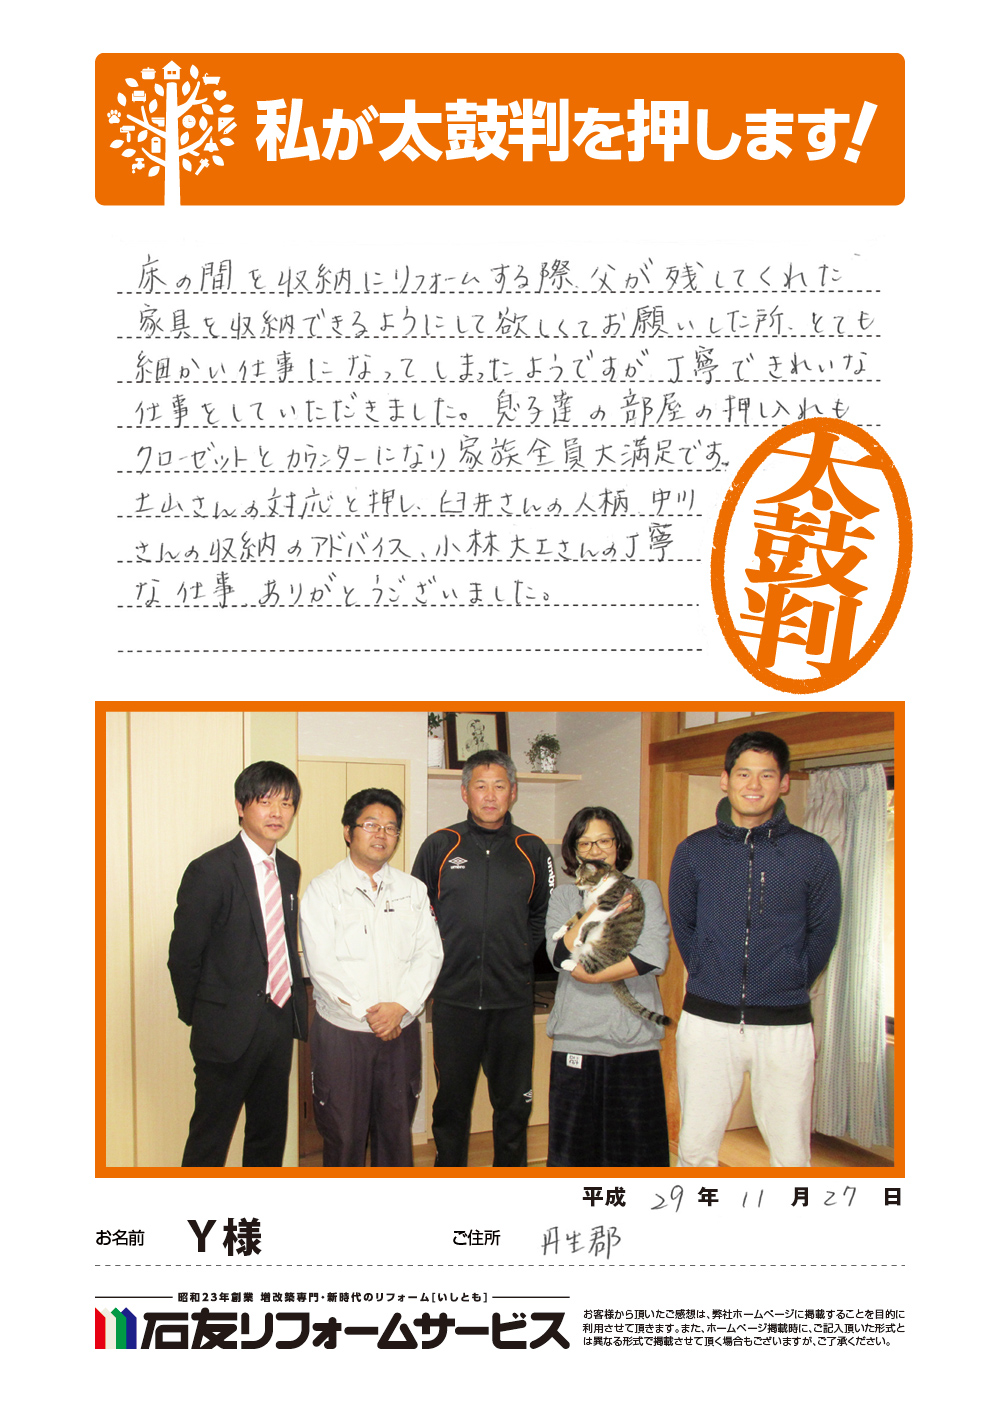 私が太鼓判を押します!
床の間を収納にリフォームする際、父が残してくれた
家具を収納できるようにして欲しくてお願いした所、とても
細かい仕事になってしまったようですが、丁寧できれいな
仕事をしていただきました。息子達の部屋の押し入れも
クローゼットとカウンターになり家族全員大満足です。
土山さんの対応と押し、臼井さんの人柄、中川
さんの収納のアドバイス、小林大工さんの丁寧
な仕事、ありがとうございました。
太鼓判
umbro
umbro
平成 29年 11月27日
お名前 Y様 ご住所 丹生郡
昭和23年創業 増改築専門・新時代のリフォーム[いしとも]
石友リフォームサービス
お客様から頂いたご感想は、弊社ホームページに掲載することを目的に
利用させて頂きます。また、ホームページ掲載時に、ご記入頂いた形式と
は異なる形式で掲載させて頂く場合もございますが、ご了承ください。